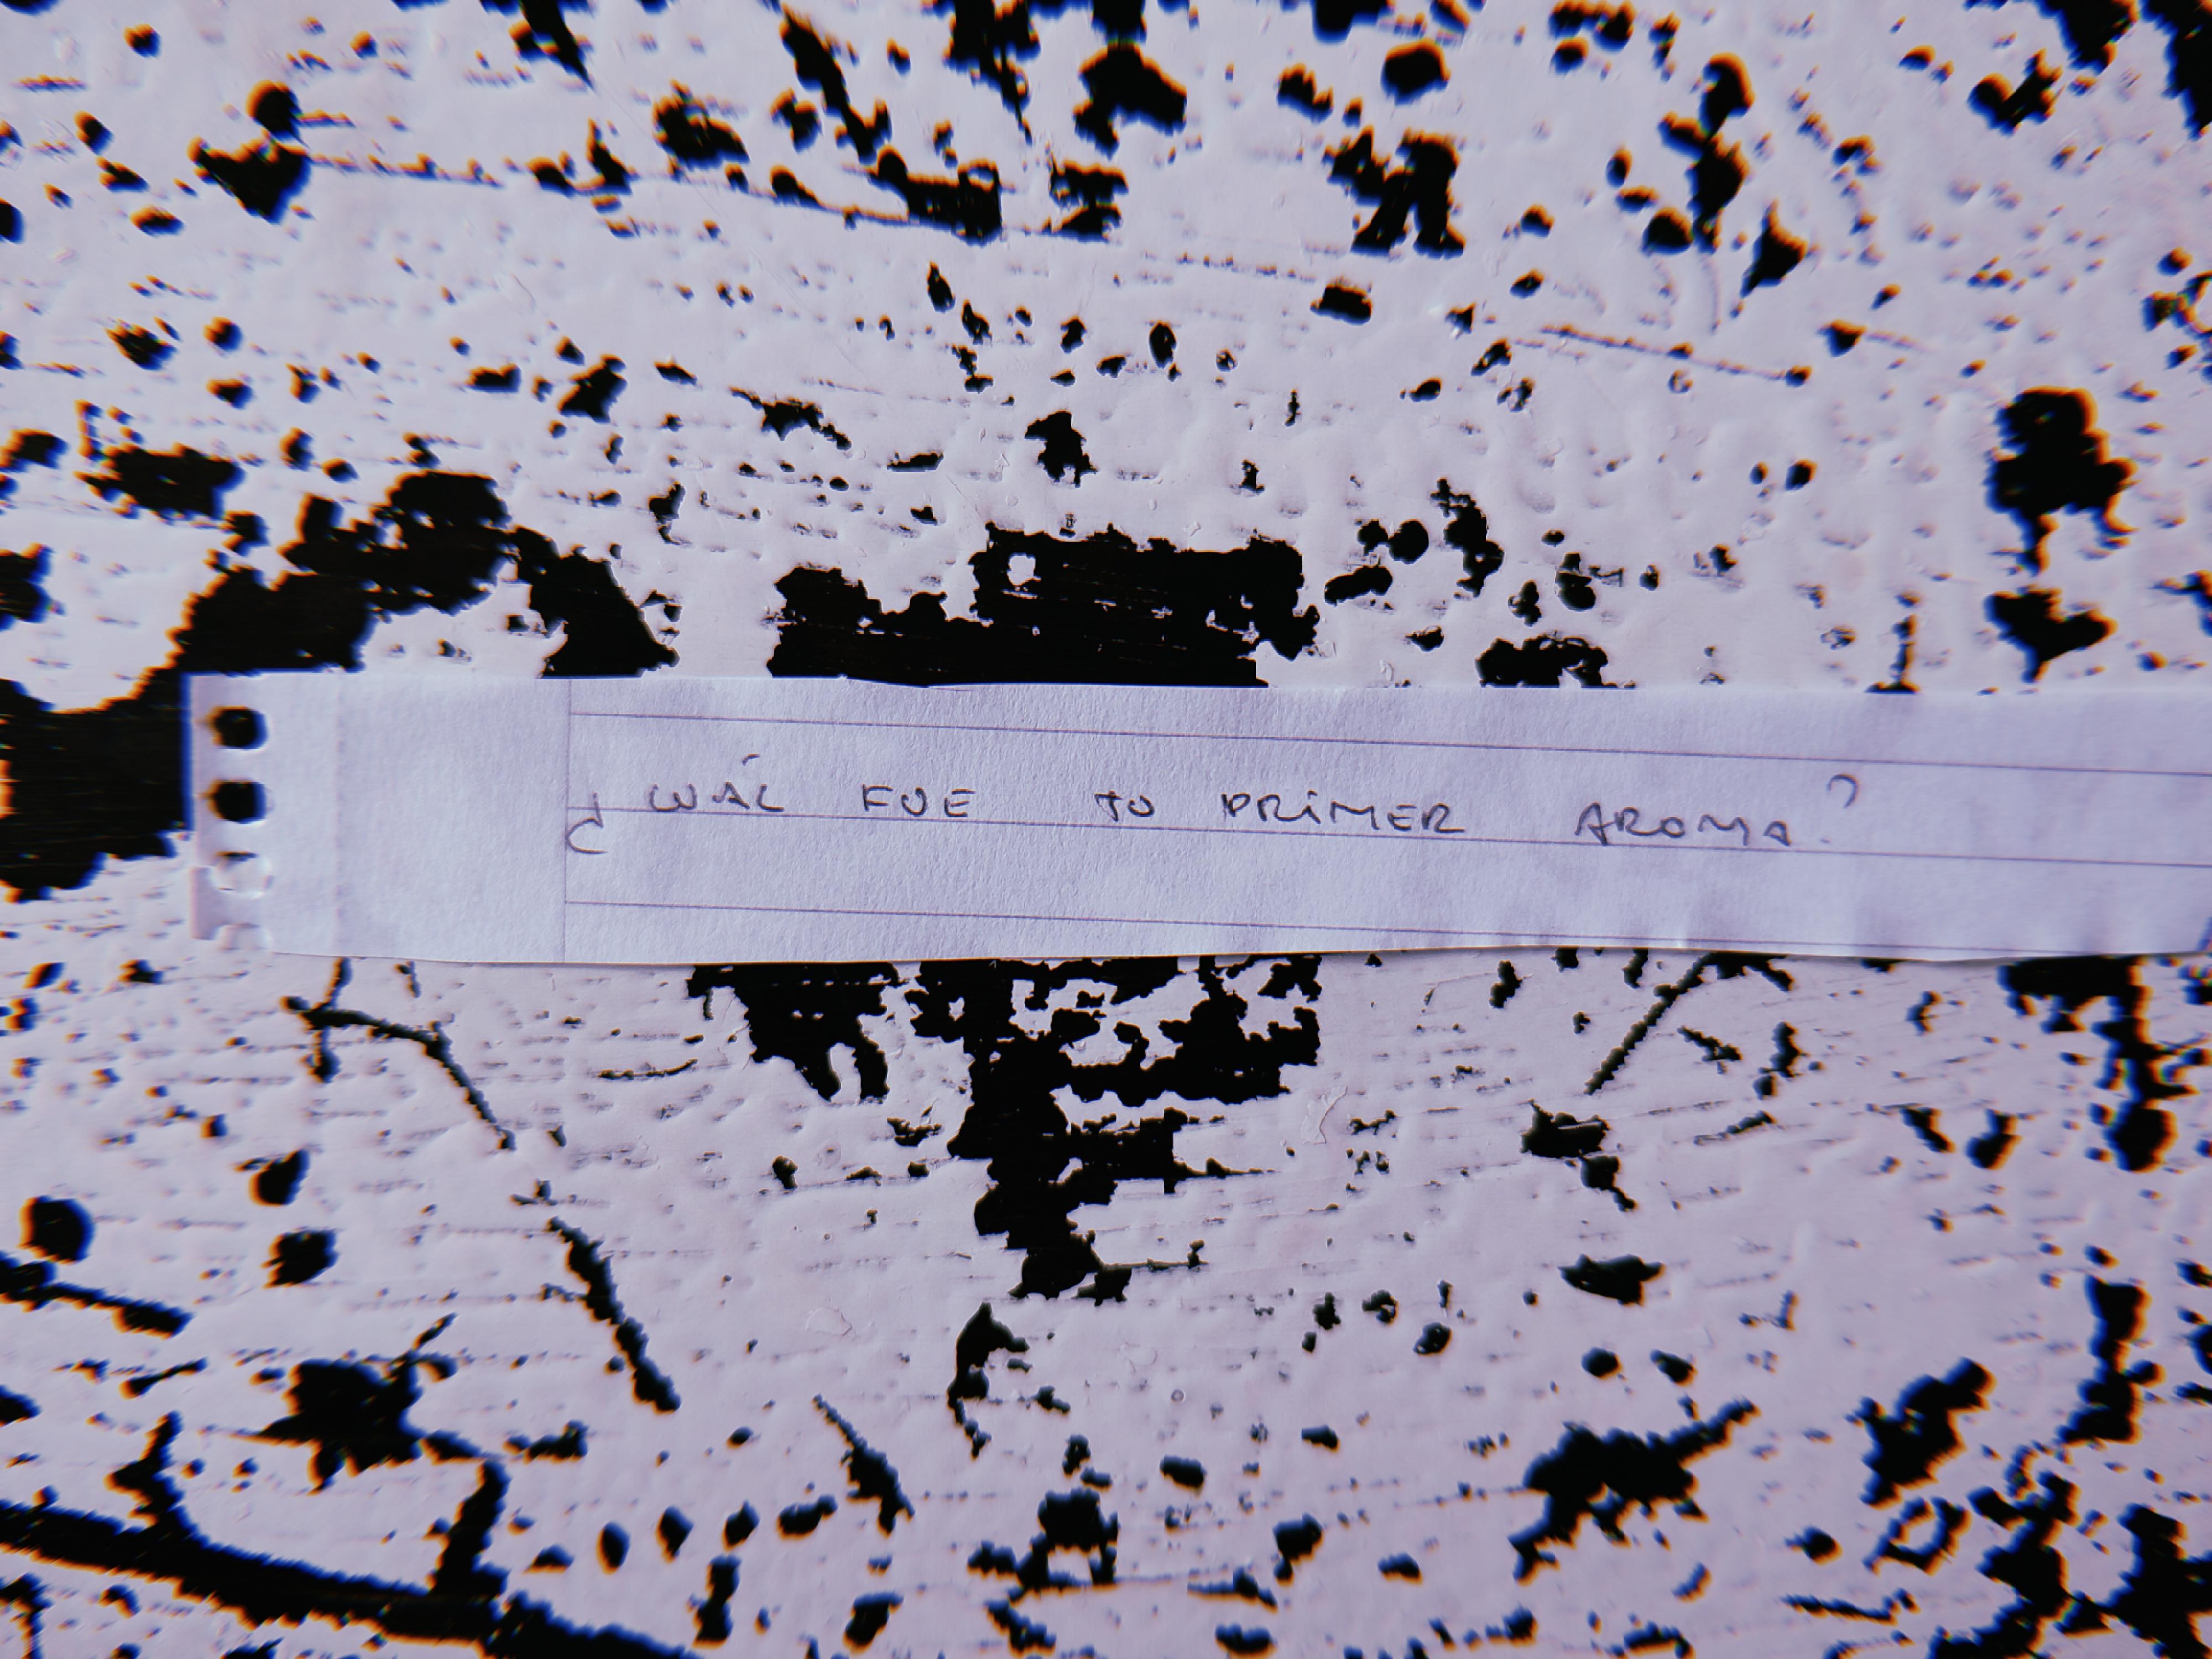 ¿CUÁL FUE TU PRIMER AROMA?